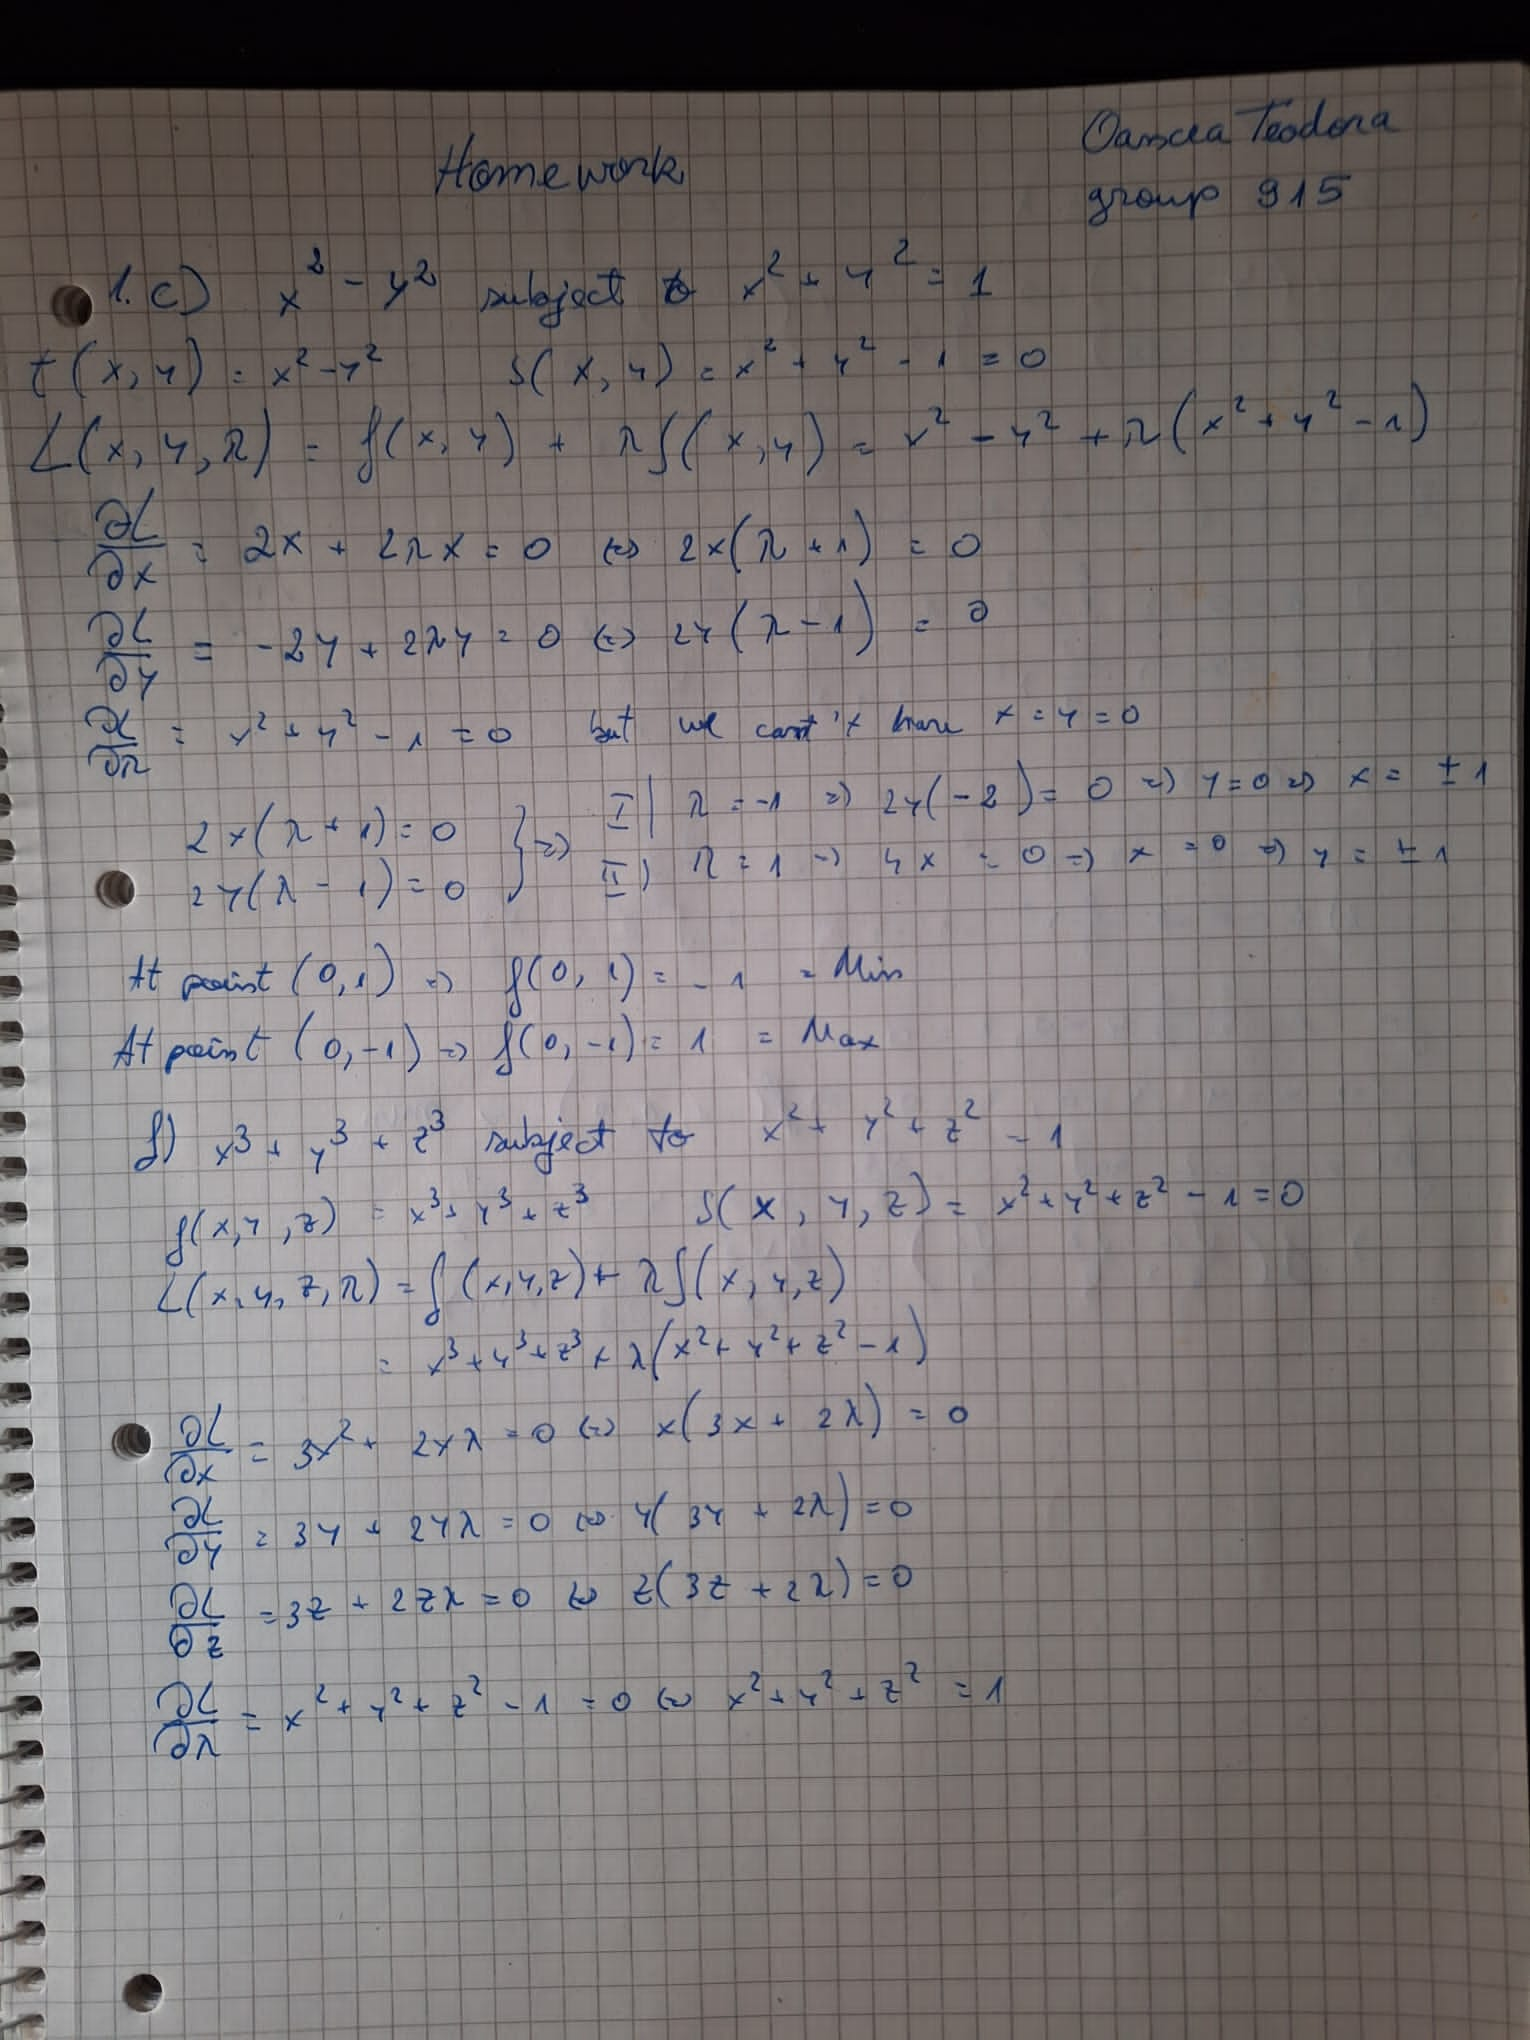 Homework
Oancea Teodora
group 915
1. c) x² - y² subject to x² + y² = 1
f(x, y) = x² - y² S(x, y) = x² + y² - 1 = 0
L(x, y, λ) = f(x, y) + λS(x, y) = x² - y² + λ(x² + y² - 1)
∂L/∂x = 2x + 2λx = 0 <=> 2x(λ + 1) = 0
∂L/∂y = -2y + 2λy = 0 <=> 2y(λ - 1) = 0
∂L/∂λ = x² + y² - 1 = 0 but we can't have x = y = 0
2x(λ + 1) = 0 } => I) λ = -1 => 2y(-2) = 0 => y = 0 => x = ±1
2y(λ - 1) = 0 II) λ = 1 => 4x = 0 => x = 0 => y = ±1
At point (0, 1) => f(0, 1) = -1 = Min
At point (0, -1) => f(0, -1) = 1 = Max
f) x³ + y³ + z³ subject to x² + y² + z² = 1
f(x, y, z) = x³ + y³ + z³ S(x, y, z) = x² + y² + z² - 1 = 0
L(x, y, z, λ) = f(x, y, z) + λS(x, y, z)
= x³ + y³ + z³ + λ(x² + y² + z² - 1)
∂L/∂x = 3x² + 2xλ = 0 <=> x(3x + 2λ) = 0
∂L/∂y = 3y + 2yλ = 0 <=> y(3y + 2λ) = 0
∂L/∂z = 3z + 2zλ = 0 <=> z(3z + 2λ) = 0
∂L/∂λ = x² + y² + z² - 1 = 0 <=> x² + y² + z² = 1